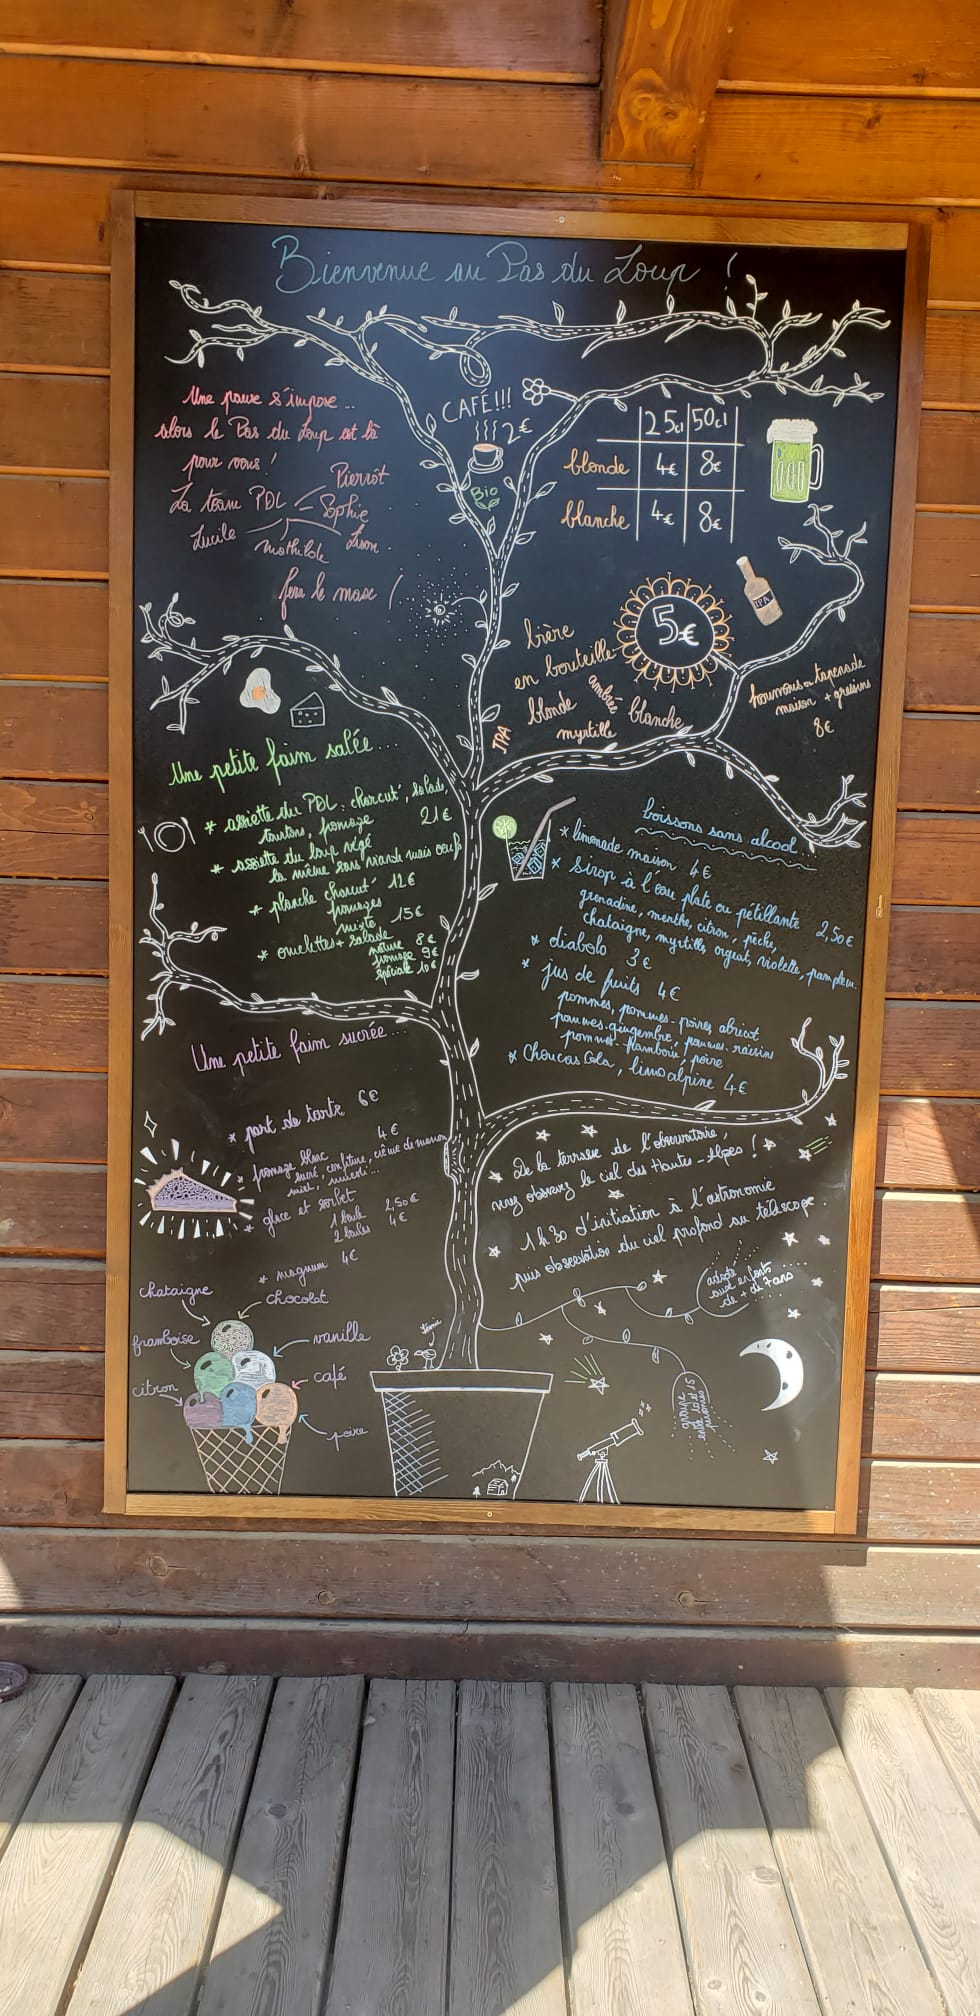 Bienvenue au Pas du Loup !
Une pause s'impose...
alors le Pas du Loup est là
pour vous !
La team PDL
Pierrot
Sophie
Lucile
Mathilde
Lison
fera le max !
CAFÉ!!!
2€
Bio
25cl 50cl
blonde 4€ 8€
blanche 4€ 8€
IPA
bière
en bouteille
5€
blonde
ambrée
blanche
IPA
myrtille
houmous ou tapenade
maison + gressins
8€
Une petite faim salée...
* assiette du PDL : charcut', salade,
tourtons, fromage 21€
* assiette du loup végé
la même sans viande mais oeufs
* planche charcut' 12€
fromages
mixte 15€
* omelettes + salade
nature 8€
fromage 9€
spéciale 10€
boissons sans alcool...
* limonade maison 4€
* sirop à l'eau plate ou pétillante 2,50€
grenadine, menthe, citron, pêche,
chataigne, myrtille, orgeat, violette, pamplem.
* diabolo 3€
* jus de fruits 4€
pommes, pommes-poires, abricot
pommes-gingembre, pommes-raisin
pommes-framboise, poire
* Choucas Cola, limo alpine 4€
Une petite faim sucrée...
* part de tarte 6€
* fromage blanc 4€
sucré, confiture, crème de marron
miel, muesli...
* glace et sorbet
1 boule 2,50€
2 boules 4€
* magnum 4€
chataigne
chocolat
framboise
vanille
citron
café
poire
De la terrasse de l'observatoire,
venez observer le ciel des Hautes-Alpes !
1h30 d'initiation à l'astronomie
puis observation du ciel profond au télescope.
adulte
et enfants
de + de 7ans
groupe
entre 10 et 15
personnes